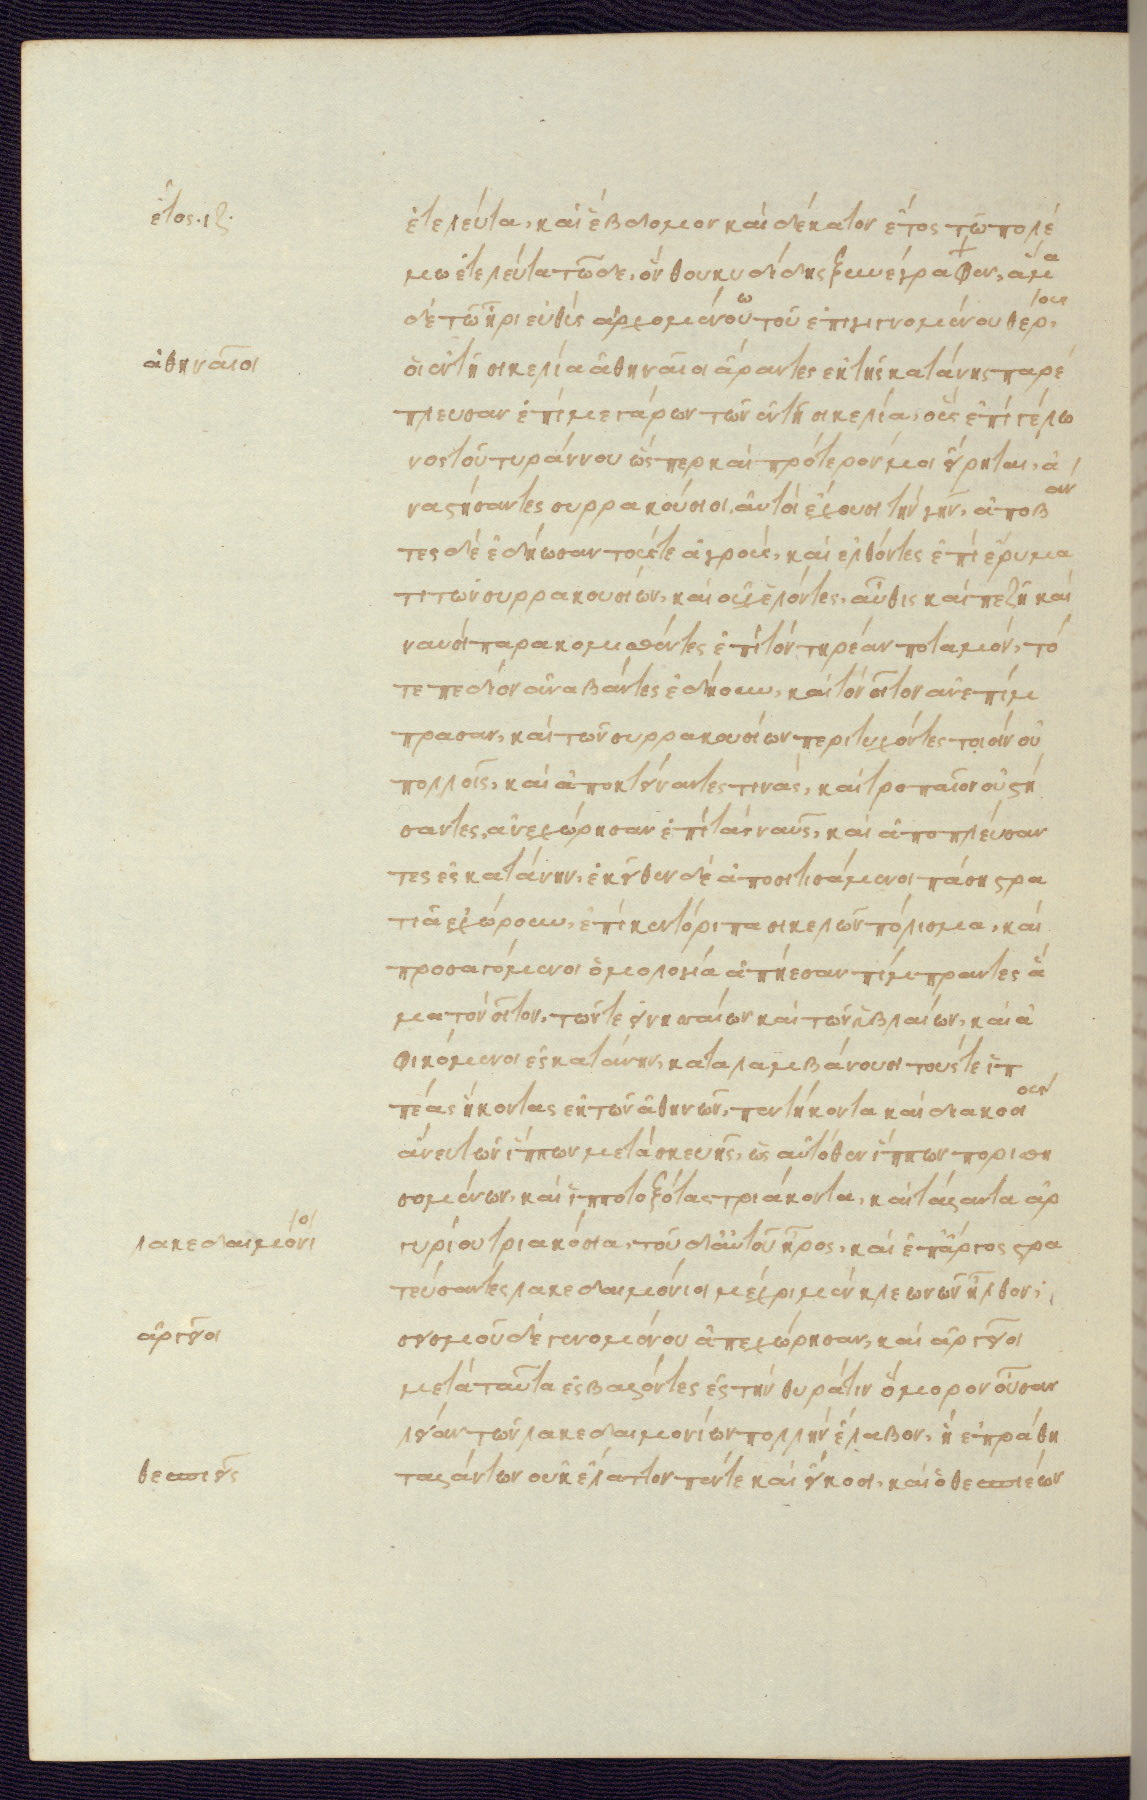 ἔτος ιζ
ἐτελεύτα, καὶ ἕβδομον καὶ δέκατον ἔτος τῶ πολέ
μω ἐτελεύτα τῶδε, ὃν θουκυδίδης ξυνέγραψεν, ἅμα
δὲ τῶ ἦρι εὐθὺς ἀρχομένου τοῦ ἐπιγιγνομένου θέρους
ἀθηναῖοι
οἱ ἐν τῆ σικελία ἀθηναῖοι ἄραντες ἐκ τῆς κατάνης παρέ
πλευσαν ἐπὶ μεγάρων τῶν ἐν τῆ σικελία, οὓς ἐπὶ γέλω
νος τοῦ τυράννου ὥσπερ καὶ πρότερόν μοι εἴρηται, ἀ
ναστήσαντες συρρακούσιοι, αὐτοὶ ἔχουσι τὴν γῆν, ἀποβάν
τες δὲ ἐδήωσαν τούς τε ἀγροὺς, καὶ ἐλθόντες ἐπὶ ἔρυμα
τι τῶν συρρακουσίων, καὶ οὐχ ἑλόντες, αὖθις καὶ πεζῆ καὶ
ναυσὶ παρακομισθέντες ἐπὶ τὸν τηρέαν ποταμόν, τό
τε πεδίον ἀναβάντες ἐδήουν, καὶ τὸν σῖτον ἀνεπίμ
πρασαν, καὶ τῶν συρρακουσίων περιτυχόντες τισὶν οὐ
πολλοῖς, καὶ ἀποκτείναντες τινὰς, καὶ τροπαῖον στή
σαντες, ἀνεχώρησαν ἐπὶ τὰς ναῦς, καὶ ἀποπλεύσαν
τες ἐς κατάνην, ἐκεῖθεν δὲ ἀποσιτισάμενοι πάση στρα
τιᾶ ἐχώρουν, ἐπὶ κεντόριπα σικελῶν πόλισμα, καὶ
προσαγόμενοι ὁμολογία ἀπήεσαν πίμπραντες ἅ
μα τὸν σῖτον, τῶν τε ἰνησσαίων καὶ τῶν ὑβλαίων, καὶ ἀ
φικόμενοι ἐς κατάνην, καταλαμβάνουσι τούς τε ἱπ
πέας ἥκοντας ἐκ τῶν ἀθηνῶν, πεντήκοντα καὶ διακοσίους
ἄνευ τῶν ἵππων μετὰ σκευῆς, ὡς αὐτόθεν ἵππων πορισθη
σομένων, καὶ ἱπποτοξότας τριάκοντα, καὶ τάλαντα ἀρ
λακεδαιμόνιοι
γυρίου τριακόσια, τοῦ δ' αὐτοῦ ἦρος, καὶ ἐπ' ἄργος στρα
τεύσαντες λακεδαιμόνιοι μέχρι μὲν κλεωνῶν ἦλθον,
ἀργεῖοι
σεισμοῦ δὲ γενομένου ἀπεχώρησαν, καὶ ἀργεῖοι
μετὰ ταῦτα ἐσβαλόντες ἐς τὴν θυρᾶτιν ὅμορον οὖσαν
λείαν τῶν λακεδαιμονίων πολλὴν ἔλαβον, ἣ ἐπράθη
θεσπιεῖς
ταλάντων οὐκ ἔλαττον πέντε καὶ εἴκοσι, καὶ ὁ θεσπιέων